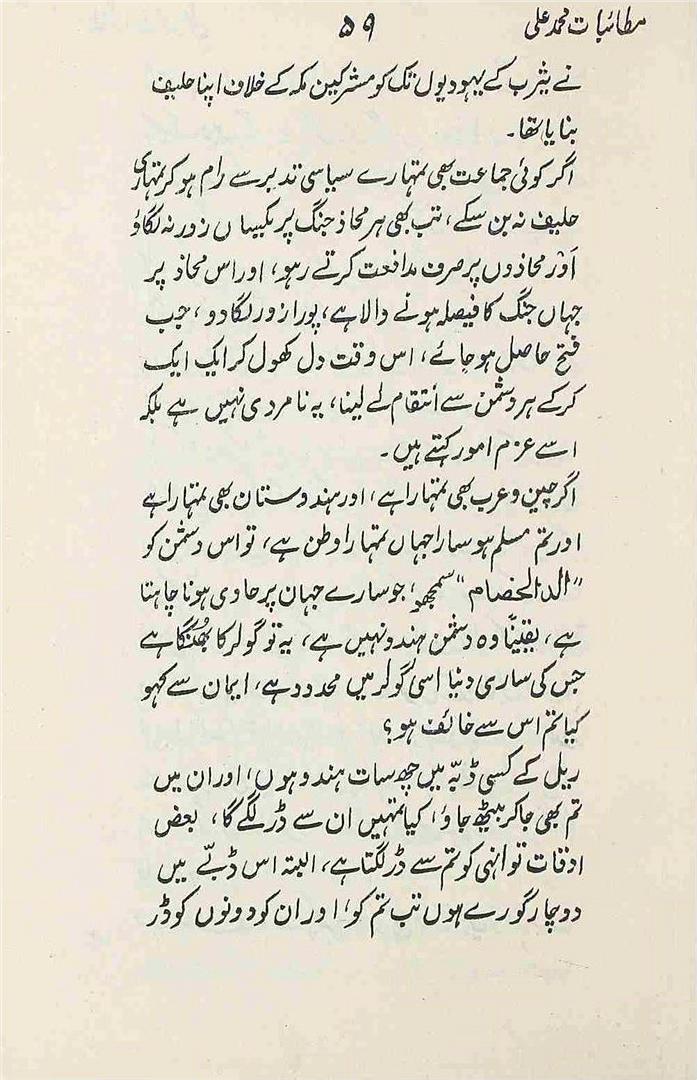 مطائبات محمد علی
۵۹
نے یثرب کے یہودیوں تک کو مشرکین مکہ کے خلاف اپنا حلیف
بنایا تھا۔
اگر کوئی جماعت بھی تمہارے سیاسی تدبر سے رام ہو کر تمہاری
حلیف نہ بن سکے، تب بھی ہر محاذ جنگ پر یکساں زور نہ لگاؤ
اَور محاذوں پر صرف مدافعت کرتے رہو، اور اس محاذ پر
جہاں جنگ کا فیصلہ ہونے والا ہے، پورا زور لگا دو، جب
فتح حاصل ہو جائے، اس وقت دل کھول کر ایک ایک
کر کے ہر دشمن سے انتقام لے لینا، یہ نامردی نہیں ہے بلکہ
اسے عزم امور کہتے ہیں۔
اگر چین و عرب بھی تمہارا ہے، اور ہندوستان بھی تمہارا ہے
اور تم مسلم ہو سارا جہاں تمہارا وطن ہے، تو اس دشمن کو
"الد الخصام" سمجھو، جو سارے جہان پر حاوی ہونا چاہتا
ہے، یقیناً وہ دشمن ہندو نہیں ہے، یہ تو گولر کا بھُنگا ہے
جس کی ساری دنیا اسی گولر میں محدود ہے، ایمان سے کہو
کیا تم اس سے خائف ہو؟
ریل کے کسی ڈبّہ میں چھ سات ہندو ہوں، اور ان میں
تم بھی جا کر بیٹھ جاؤ، کیا تمہیں ان سے ڈر لگے گا، بعض
اوقات تو انہی کو تم سے ڈر لگتا ہے، البتہ اس ڈبّے میں
دو چار گورے ہوں تب تم کو، اور ان کو دونوں کو ڈر